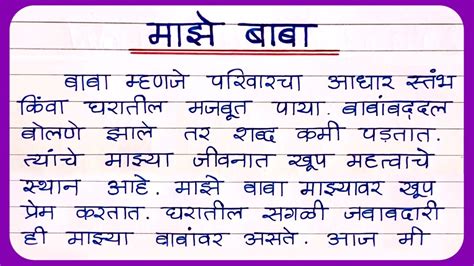 माझे बाबा
बाबा म्हणजे परिवारचा आधार स्तंभ
किंवा घरातील मजबूत पाया. बाबांबद्दल
बोलणे झाले तर शब्द कमी पडतात.
त्यांचे माझ्या जीवनात खूप महत्वाचे
स्थान आहे. माझे बाबा माझ्यावर खूप
प्रेम करतात. घरातील सगळी जबाबदारी
ही माझ्या बाबांवर असते. आज मी